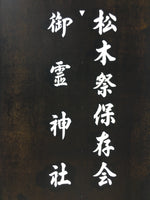 松木祭保存会
御霊神社